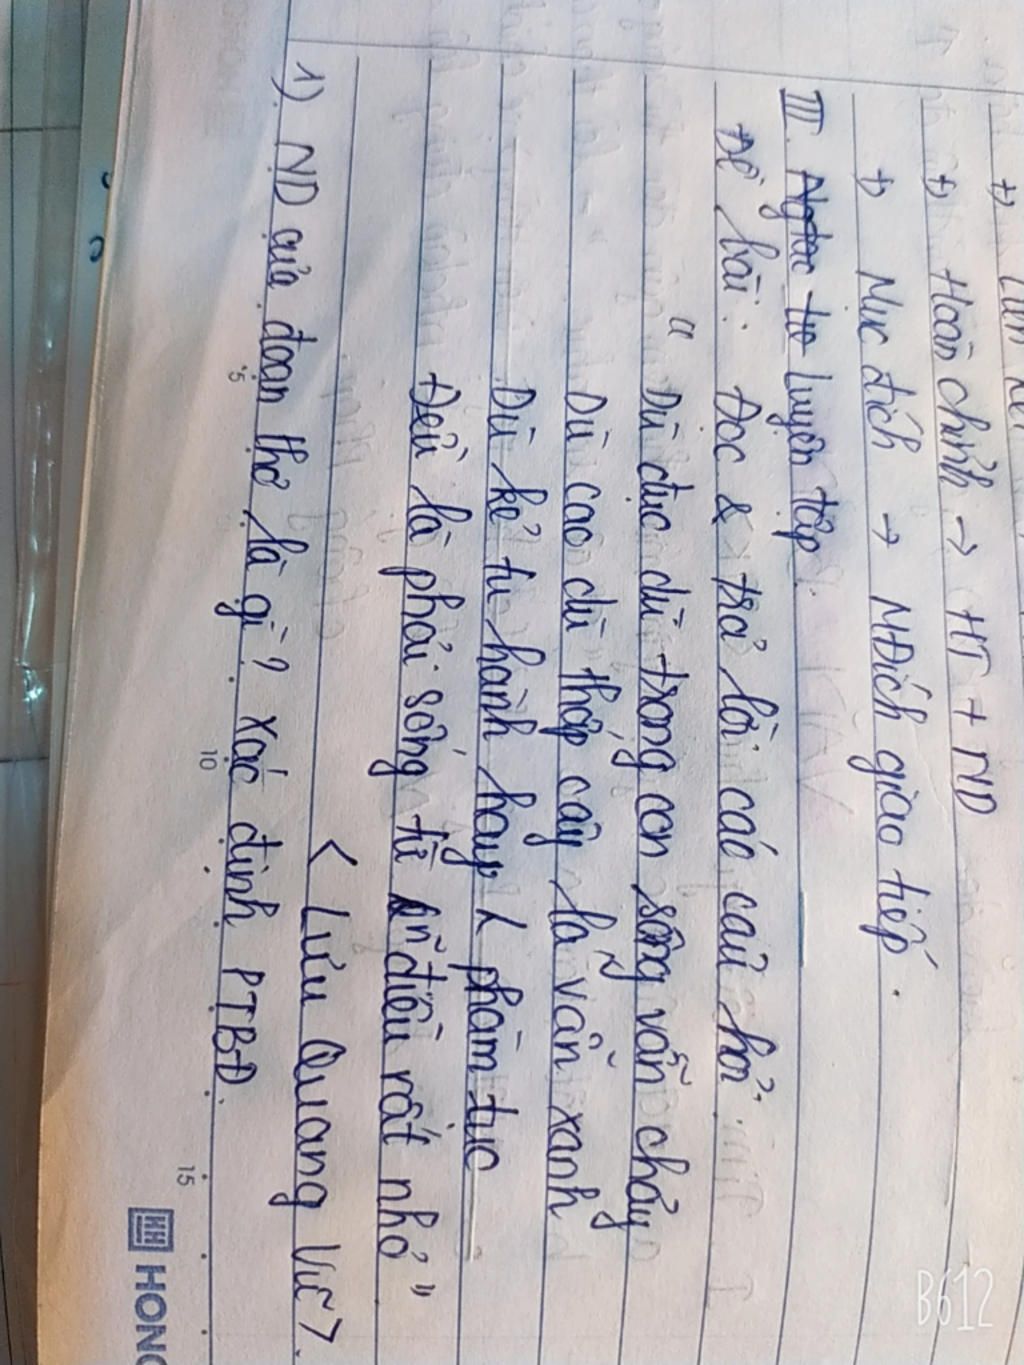 +)
+) Hoàn chỉnh → HT + ND
+) Mục đích → MĐích giao tiếp.
III. Luyện tập.
Đề bài: Đọc & trả lời các câu hỏi.
"Dù đục dù trong con sông vẫn chảy
Dù cao dù thấp cây lá vẫn xanh
Dù kẻ tu hành hay / phàm tục
Đều là phải sống từ điều rất nhỏ"
< Lưu Quang Vũ >.
1) ND của đoạn thơ là gì? Xác định PTBĐ.
5
10
15
HH HONG
B612